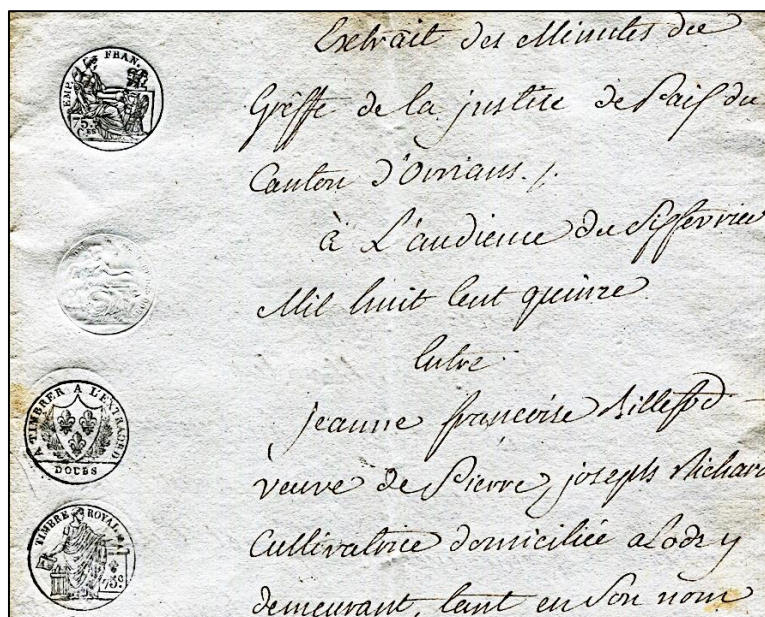 EMP. FRAN.
75.
C.ES
A TIMBRER A L'EXTRAORD.
DOUBS
TIMBRE ROYAL.
75c
Extrait des Minutes du
Greffe de la justice de Paix du
Canton d'Ornans ./.
à L'audience du Six fevrier
Mil huit Cent quinze
Entre
Jeanne françoise Billefod
veuve de Pierre, joseph Richard
Cultivatrice domiciliée a Lods y
demeurant, tant en Son nom